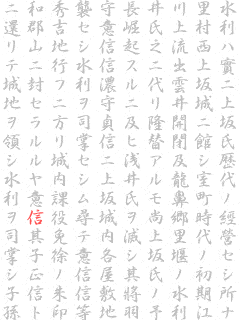 水利ハ實ニ上坂氏歴代ノ經營セシ所ナ
里村西上坂城ニ館シ室町時代ノ初期江
川上流出雲井開閉及龍鼻郷里堰ノ水利
井氏之ニ代リ隆替アルモ尚上坂氏ノ予
長崛起スルニ及ヒ浅井氏ヲ滅シ其將羽
守意信濃守貞信ニ上坂城内各屋敷地
襲セシ水利ヲ司掌セシム尋テ意信等
秀吉地行フニ方リ城内課役免徐ノ朱印
和郡山ニ封セラルルヤ意信其子正信ト
ニ還リテ城地ヲ領シ水利ヲ司掌シ子孫